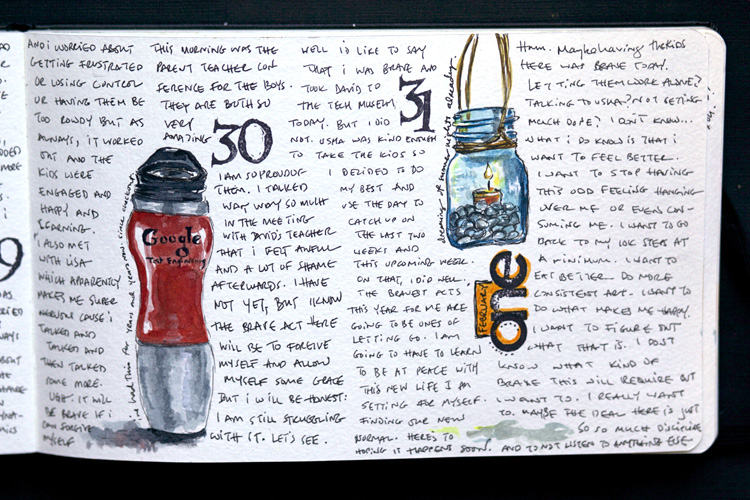 AND I WORRIED ABOUT
GETTING FRUSTRATED
OR LOSING CONTROL
OR HAVING THEM BE
TOO ROWDY BUT AS
ALWAYS, IT WORKED
OUT AND THE
KIDS WERE
ENGAGED AND
HAPPY AND
LEARNING.
I ALSO MET
WITH LISA
WHICH APPARENTLY
MAKES ME SUPER
NERVOUS CAUSE I
TALKED AND
TALKED AND
THEN TALKED
SOME MORE.
UGH. IT WILL
BE BRAVE IF I
CAN FORGIVE
MYSELF
THIS MORNING WAS THE
PARENT TEACHER CON
FERENCE FOR THE BOYS.
THEY ARE BOTH SO
VERY
AMAZING
30
I AM SO PROUD OF
THEM. I TALKED
WAY WAY SO MUCH
IN THE MEETING
WITH DAVID'S TEACHER
THAT I FELT AWFUL
AND A LOT OF SHAME
AFTERWARDS. I HAVE
NOT YET, BUT I KNOW
THE BRAVE ACT HERE
WILL BE TO FORGIVE
MYSELF AND ALLOW
MYSELF SOME GRACE
BUT I WILL BE HONEST:
I AM STILL STRUGGLING
WITH IT. LET'S SEE.
Google
Test Engineering
i've had this for years and years now. since
WELL I'D LIKE TO SAY
THAT I WAS BRAVE AND
TOOK DAVID TO
THE TECH MUSEUM
TODAY. BUT I DID
NOT. USHA WAS KIND ENOUGH
TO TAKE THE KIDS SO
31
I DECIDED TO DO
MY BEST AND
USE THE DAY TO
CATCH UP ON
THE LAST TWO
WEEKS AND
THIS UPCOMING WEEK.
ON THAT, I DID WELL.
THE BRAVEST ACTS
THIS YEAR FOR ME ARE
GOING TO BE ONES OF
LETTING GO. I AM
GOING TO HAVE TO LEARN
TO BE AT PEACE WITH
THIS NEW LIFE I AM
SETTING FOR MYSELF.
FINDING OUR NEW
NORMAL. HERE'S TO
HOPING IT HAPPENS SOON.
dreaming of summer nights already
FEBRUARY
one
Hmm. Maybe having the kids
HERE WAS BRAVE TODAY.
LETTING THEM WORK ALONE?
TALKING TO USHA? NOT GETTING
MUCH DONE? I DON'T KNOW...
WHAT I DO KNOW IS THAT I
WANT TO FEEL BETTER.
I WANT TO STOP HAVING
THIS ODD FEELING HANGING
OVER ME OR EVEN CON-
SUMING ME. I WANT TO GO
BACK TO MY 10K STEPS AT
A MINIMUM. I WANT TO
EAT BETTER. DO MORE
CONSISTENT ART. I WANT TO
DO WHAT MAKES ME HAPPY.
I WANT TO FIGURE OUT
WHAT THAT IS. I DON'T
KNOW WHAT KIND OF
BRAVE THIS WILL REQUIRE BUT
I WANT TO. I REALLY WANT
TO. MAYBE THE DEAL HERE IS JUST
SO SO MUCH DISCIPLINE
AND TO NOT LISTEN TO ANYTHING ELSE